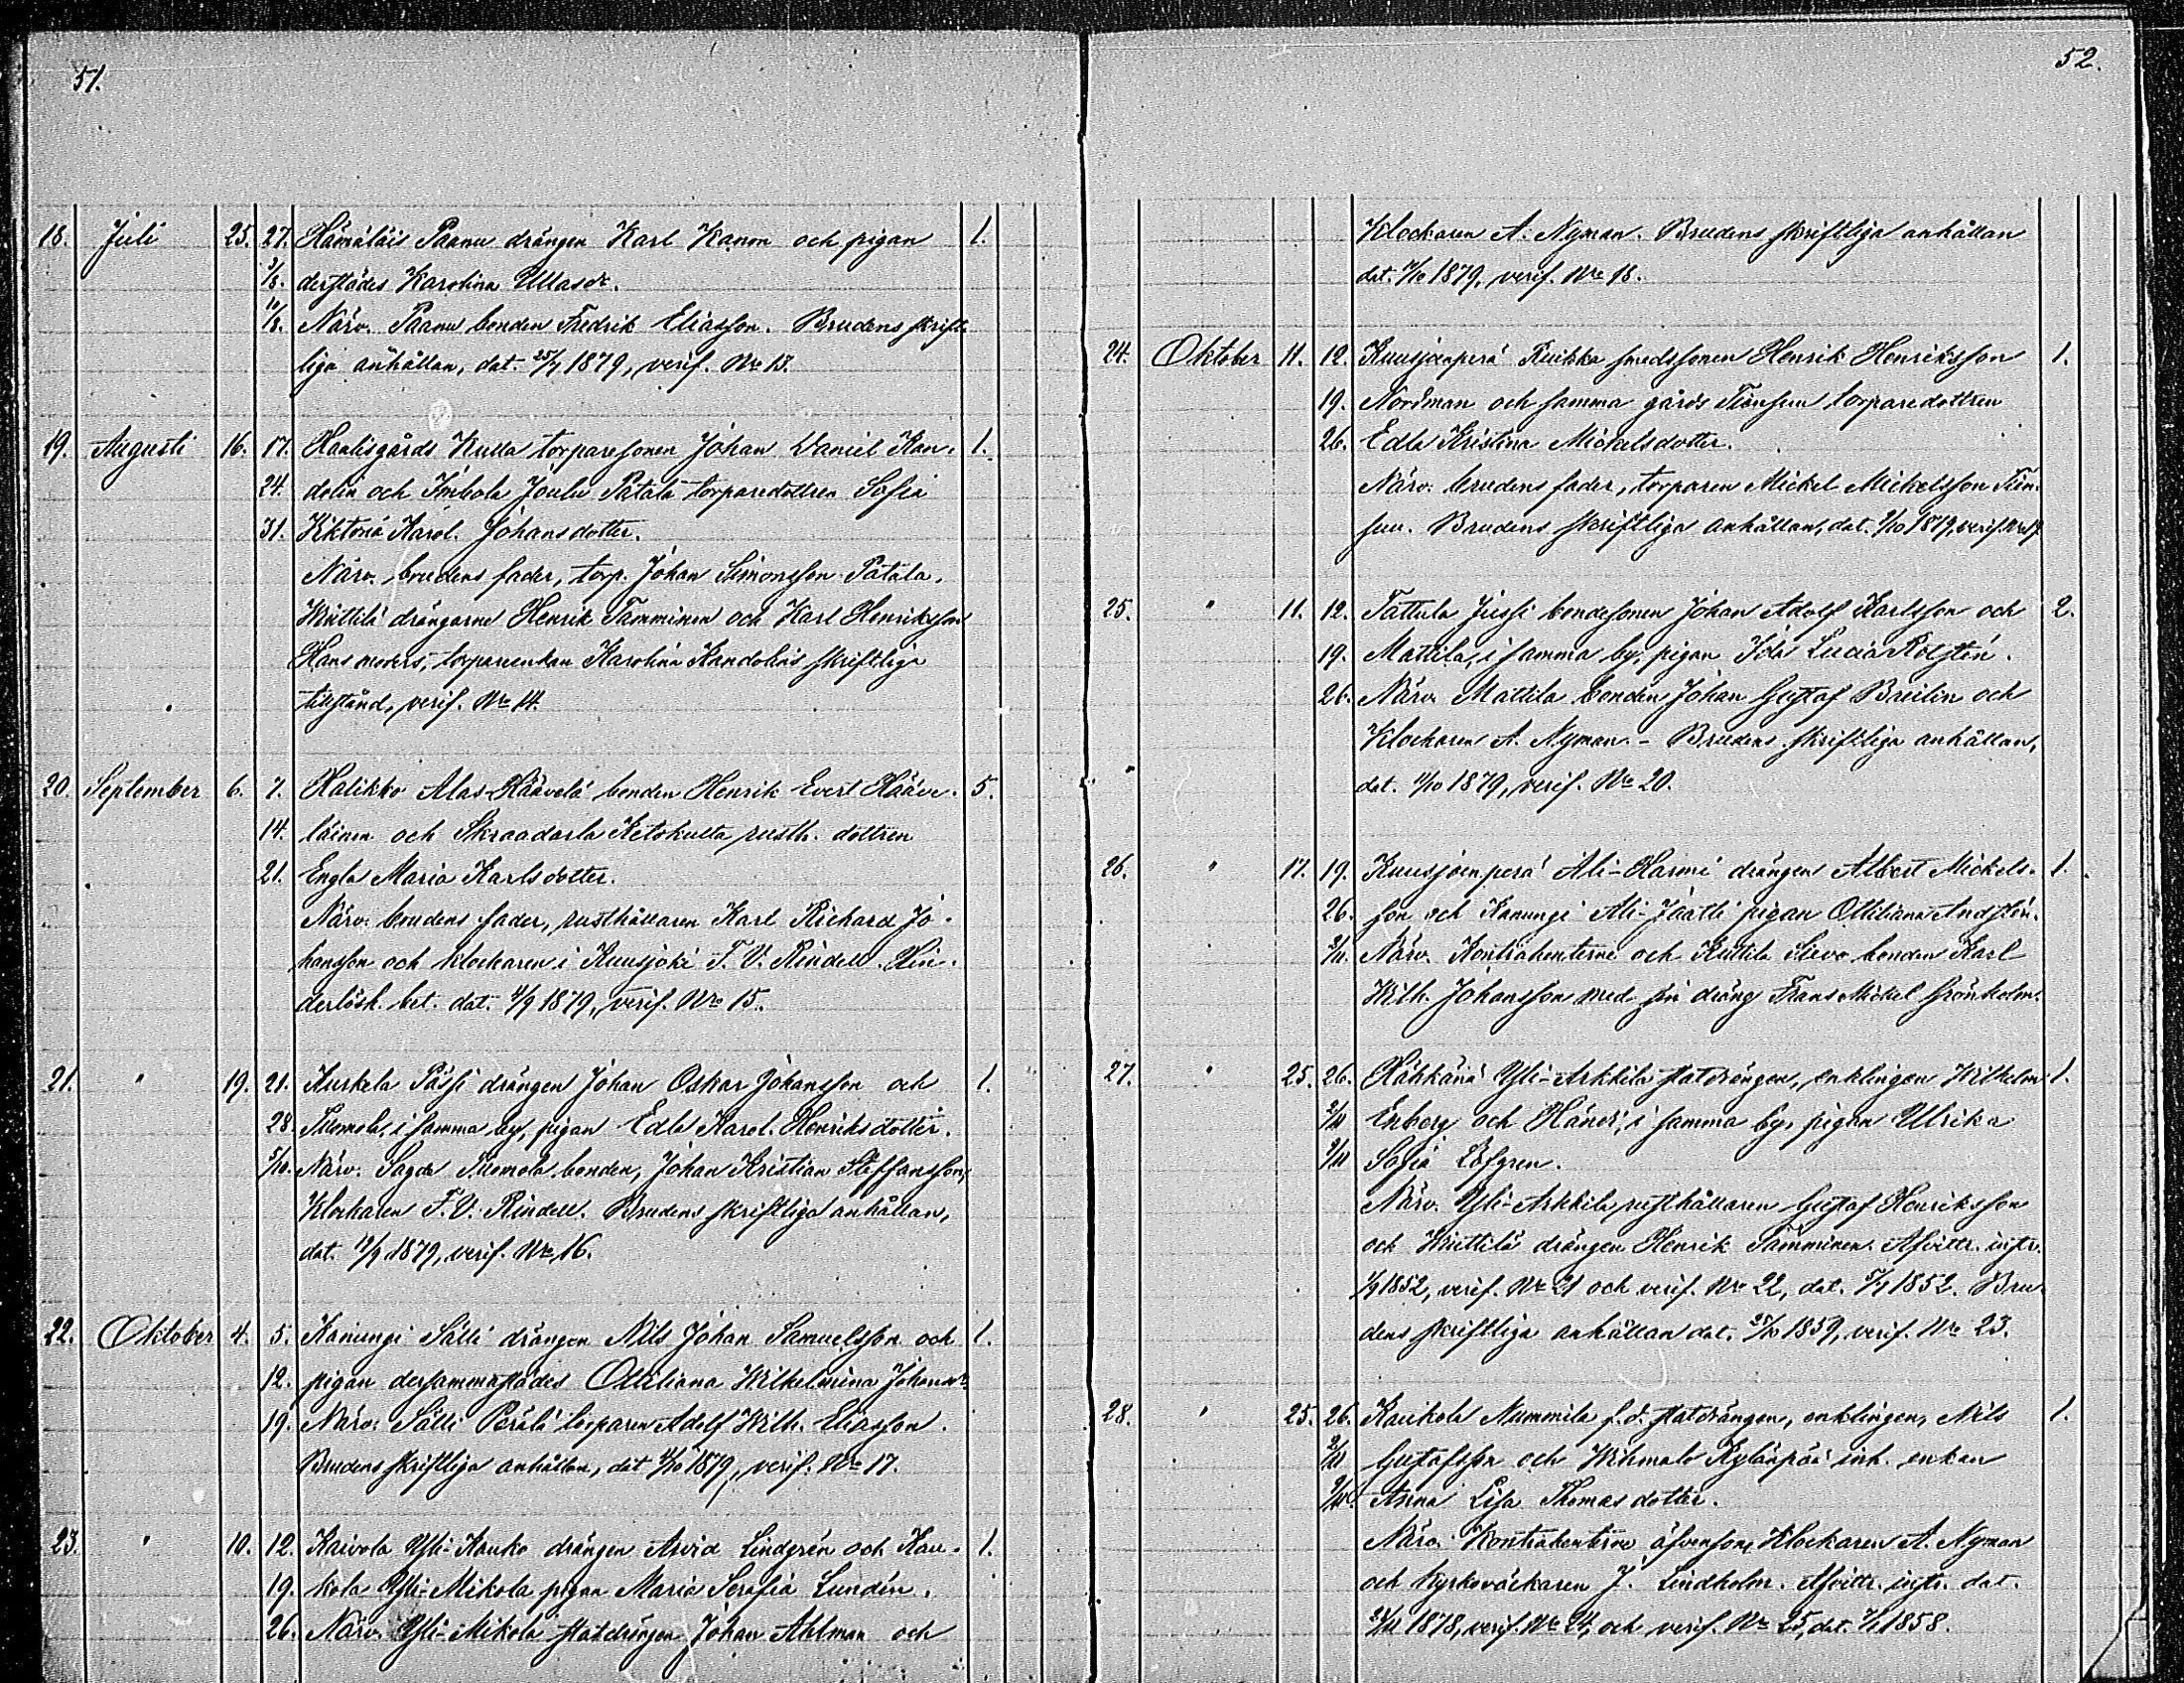 51.
18. Juli 25. 27. Hämäläis Paanu drängen Karl Kanon och pigan 1.
3/8. derstädes Karolina Ullasdr.
10/8. Närv. Paanu bonden Fredrik Eliasson. Brudens skrift
liga anhållan, dat. 25/7 1879, verif. No 13.
19. Augusti 16. 17. Haalisgårds Kulla torparesonen Johan Daniel Kan- 1.
24. dolin och Joulu Pätälä torparedottren Sofia
31. Viktoria Karol. Johansdotter.
Närv. brudens fader, torp. Johan Simonsson Pätälä,
Wuttilä drängarne Henrik Tamminen och Karl Henriksson
Hans moders, torpareenkan Karolina Kandolins skriftliga
tillstånd, verif. No 14.
20. September 6. 7. Halikko Alas-Häävelä bonden Henrik Evert Hääve- 5.
14. läinen och Skraadarla Ketokulta rusth. dottren
21. Engla Maria Karlsdotter.
Närv. brudens fader, rusthållaren Karl Richard Jo-
hansson och klockaren i Kuusjoki F. V. Rindell. Hin-
derlösh. bet. dat. 4/9 1879, verif. Nro 15.
21. " 19. 21. Kurkela Pässi drängen Johan Oskar Johansson och 1.
28. Tuomola, i samma by, pigan Edla Karol. Henriksdotter.
5/10. Närv. Sagda Tuomola bonden, Johan Kristian Steffansson,
Klockaren F. V. Rindell. Brudens skriftliga anhållan,
dat. 19/9 1879, verif. Nro 16.
22. Oktober 4. 5. Kanungi Sälli drängen Nils Johan Samuelsson och 1.
12. pigan dersammastädes Ottiliana Wilhelmina Johansdr
19. Närv. Sälli Perälä torparen Adolf Wilh. Eliasson.
Brudens skriftliga anhållan, dat 4/10 1879, verif. Nro 17.
23. " 10. 12. Kaivola Yli-Kauko drängen Arvid Lindgrén och Kau- 1.
19. kola Yli-Mikola pigan Maria Serafia Lundén.
26. Närv. Yli-Mikola statdrängen Johan Ahlman och
52.
Klockaren A. Nyman. Brudens skriftliga anhållan
dat. 1879, verif. Nro 18.
24. Oktober 11. 12. Kuusjoenperä Ruikka smedssonen Henrik Henriksson 1.
19. Nordman och samma gårds torparedottren
26. Edla Kristina Mickelsdotter.
Närv. brudens fader, torparen Mickel Mickelsson
Brudens skriftliga anhållan, dat. 9/10 1879, verif. No 19
25. " 11. 12. Tattula Jussi bondesonen Johan Adolf Karlsson och 2.
19. Mattila, i samma by, pigan Ida Lucia Rolstén.
26. Närv. Mattila bonden Johan Gustaf Breilin och
Klockaren A. Nyman. - Brudens skriftliga anhållan,
dat. 11/10 1879, verif. No 20.
26. " 17. 19. Kuusjoenperä Ali-Harmi drängen Albert Mickels- 1.
26. son och Kanungi Ali-Jäätli pigan Ottiliana Andstén.
2/11. Närv. Kontrahenterne och Kuttila Sievo bonden Karl
Wilh. Johansson med sin dräng Frans Mickel Grönholm.
27. " 25. 26. Häkkänä Yli-Arkkila statdrängen, enklingen Wilhelm 1.
2/11 Enberg och Händi, i samma by, pigan Ulrika
9/11 Sofia Löfgren.
Närv. Yli-Arkkila rusthållaren Gustaf Henriksson
och Wuttilä drängen Henrik Tamminen. Afvittr. instr.
1/9 1852, verif. No 21 och verif. No 22, dat. 1852. Bru-
dens skriftliga anhållan dat. 25/10 1859, verif. Nro 23.
28. " 25. 26. Kaukola Nummila f. d. statdrängen, enklingen, Nils 1.
2/11 Gustafsson och Wihmalo Kylänpää inh. enkan
9/11. Anna Lisa Thomasdotter.
Närv. Kontrahenterne äfvensom Klockaren A. Nyman
och Kyrkoväktaren J. Lindholm. Afvittr. instr. dat.
1878, verif. No 24, och verif. No 25, dat. 1858.